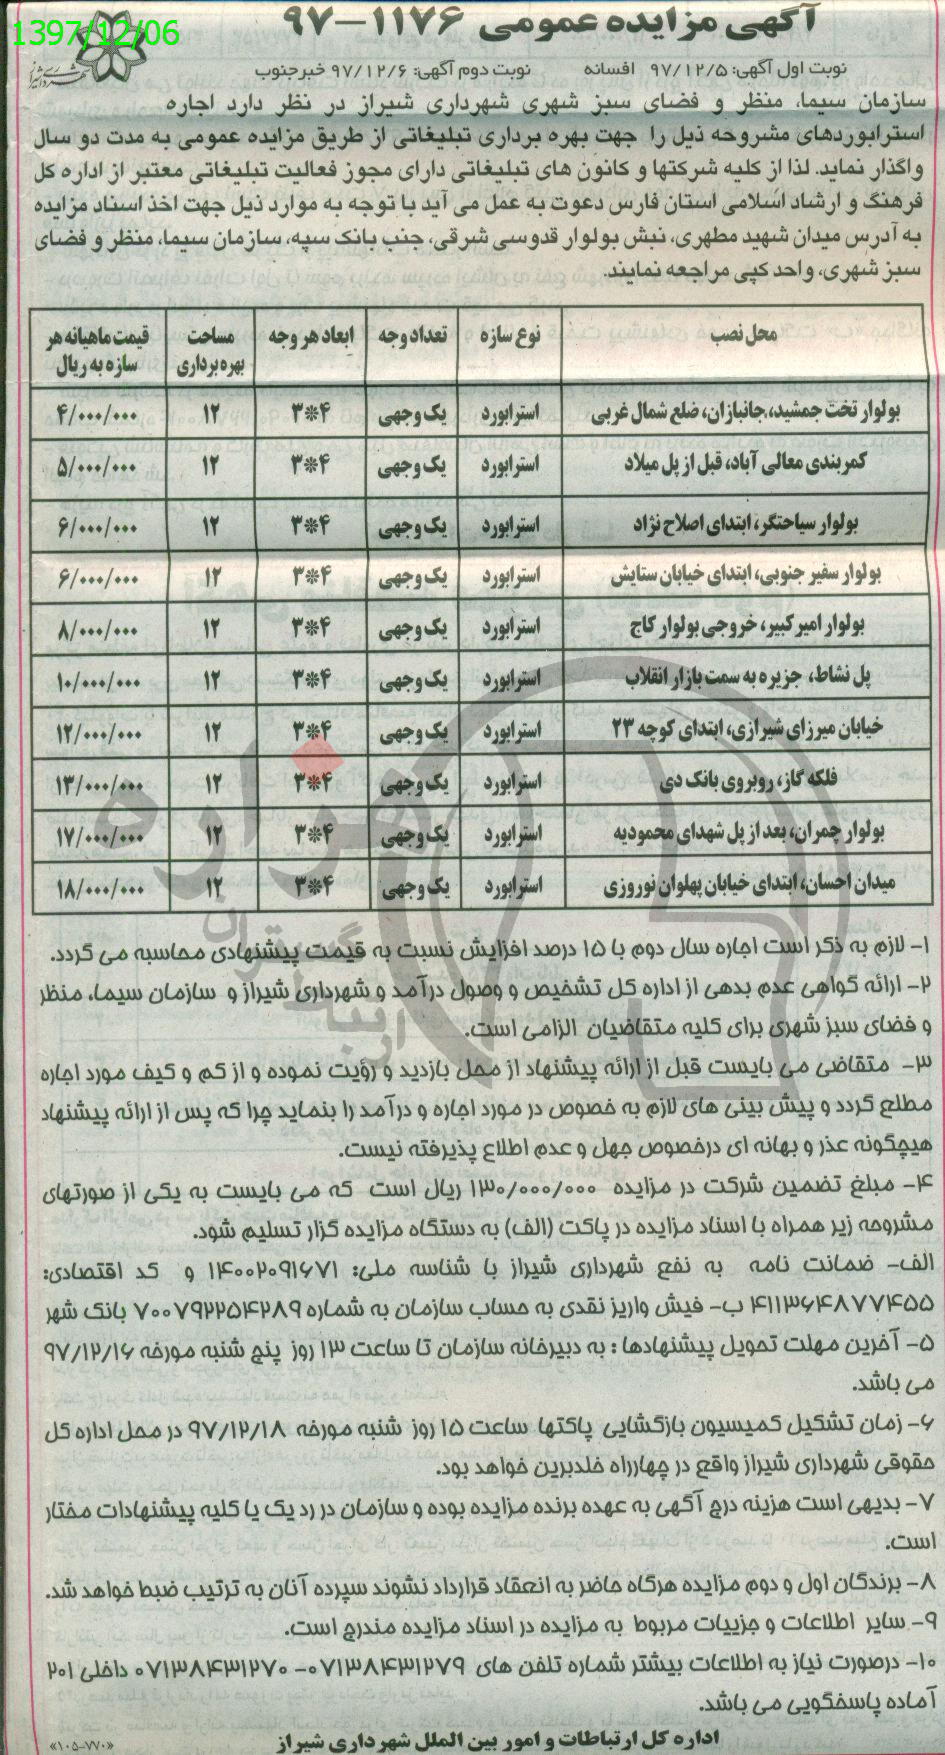 1397/12/06
آگهی مزایده عمومی ۱۱۷۶-۹۷
نوبت اول آگهی: ۹۷/۱۲/۵ افسانه نوبت دوم آگهی: ۹۷/۱۲/۶ خبرجنوب
سازمان سیما، منظر و فضای سبز شهری شهرداری شیراز در نظر دارد اجاره
استرابوردهای مشروحه ذیل را جهت بهره برداری تبلیغاتی از طریق مزایده عمومی به مدت دو سال
واگذار نماید. لذا از کلیه شرکتها و کانون های تبلیغاتی دارای مجوز فعالیت تبلیغاتی معتبر از اداره کل
فرهنگ و ارشاد اسلامی استان فارس دعوت به عمل می آید با توجه به موارد ذیل جهت اخذ اسناد مزایده
به آدرس میدان شهید مطهری، نبش بولوار قدوسی شرقی، جنب بانک سپه، سازمان سیما، منظر و فضای
سبز شهری، واحد کپی مراجعه نمایند.
محل نصب نوع سازه تعداد وجه ابعاد هر وجه مساحت بهره برداری قیمت ماهیانه هر سازه به ریال
بولوار تخت جمشید، جانبازان، ضلع شمال غربی استرابورد یک وجهی ۴*۳ ۱۲ ۴/۰۰۰/۰۰۰
کمربندی معالی آباد، قبل از پل میلاد استرابورد یک وجهی ۴*۳ ۱۲ ۵/۰۰۰/۰۰۰
بولوار سیاحتگر، ابتدای اصلاح نژاد استرابورد یک وجهی ۴*۳ ۱۲ ۶/۰۰۰/۰۰۰
بولوار سفیر جنوبی، ابتدای خیابان ستایش استرابورد یک وجهی ۴*۳ ۱۲ ۶/۰۰۰/۰۰۰
بولوار امیر کبیر، خروجی بولوار کاج استرابورد یک وجهی ۴*۳ ۱۲ ۸/۰۰۰/۰۰۰
پل نشاط، جزیره به سمت بازار انقلاب استرابورد یک وجهی ۴*۳ ۱۲ ۱۰/۰۰۰/۰۰۰
خیابان میرزای شیرازی، ابتدای کوچه ۲۳ استرابورد یک وجهی ۴*۳ ۱۲ ۱۲/۰۰۰/۰۰۰
فلکه گاز، روبروی بانک دی استرابورد یک وجهی ۴*۳ ۱۲ ۱۳/۰۰۰/۰۰۰
بولوار چمران، بعد از پل شهدای محمودیه استرابورد یک وجهی ۴*۳ ۱۲ ۱۷/۰۰۰/۰۰۰
میدان احسان، ابتدای خیابان پهلوان نوروزی استرابورد یک وجهی ۴*۳ ۱۲ ۱۸/۰۰۰/۰۰۰
۱- لازم به ذکر است اجاره سال دوم با ۱۵ درصد افزایش نسبت به قیمت پیشنهادی محاسبه می گردد.
۲- ارائه گواهی عدم بدهی از اداره کل تشخیص و وصول درآمد و شهرداری شیراز و سازمان سیما، منظر
و فضای سبز شهری برای کلیه متقاضیان الزامی است.
۳- متقاضی می بایست قبل از ارائه پیشنهاد از محل بازدید و رؤیت نموده و از کم و کیف مورد اجاره
مطلع گردد و پیش بینی های لازم به خصوص در مورد اجاره و درآمد را بنماید چرا که پس از ارائه پیشنهاد
هیچگونه عذر و بهانه ای درخصوص جهل و عدم اطلاع پذیرفته نیست.
۴- مبلغ تضمین شرکت در مزایده ۱۳۰/۰۰۰/۰۰۰ ریال است که می بایست به یکی از صورتهای
مشروحه زیر همراه با اسناد مزایده در پاکت (الف) به دستگاه مزایده گزار تسلیم شود.
الف- ضمانت نامه به نفع شهرداری شیراز با شناسه ملی: ۱۴۰۰۲۰۹۱۶۷۱ و کد اقتصادی:
۴۱۱۳۶۴۸۷۷۴۵۵ ب- فیش واریز نقدی به حساب سازمان به شماره ۷۰۰۷۹۲۲۵۴۲۸۹ بانک شهر
۵- آخرین مهلت تحویل پیشنهادها : به دبیرخانه سازمان تا ساعت ۱۳ روز پنج شنبه مورخه ۹۷/۱۲/۱۶
می باشد.
۶- زمان تشکیل کمیسیون بازگشایی پاکتها ساعت ۱۵ روز شنبه مورخه ۹۷/۱۲/۱۸ در محل اداره کل
حقوقی شهرداری شیراز واقع در چهارراه خلدبرین خواهد بود.
۷- بدیهی است هزینه درج آگهی به عهده برنده مزایده بوده و سازمان در رد یک یا کلیه پیشنهادات مختار
است.
۸- برندگان اول و دوم مزایده هرگاه حاضر به انعقاد قرارداد نشوند سپرده آنان به ترتیب ضبط خواهد شد.
۹- سایر اطلاعات و جزییات مربوط به مزایده در اسناد مزایده مندرج است.
۱۰- درصورت نیاز به اطلاعات بیشتر شماره تلفن های ۰۷۱۳۸۴۳۱۲۷۹-۰۷۱۳۸۴۳۱۲۷۰ داخلی ۲۰۱
آماده پاسخگویی می باشد.
اداره کل ارتباطات و امور بین الملل شهرداری شیراز
«۱۰۵-۷۷۰»